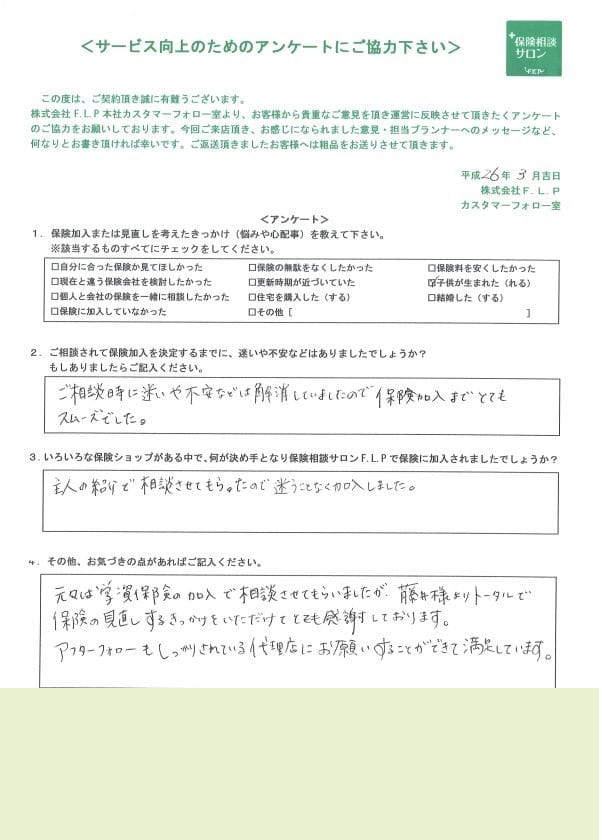 ＜サービス向上のためのアンケートにご協力下さい＞
保険相談
サロン
F.L.P
この度は、ご契約頂き誠に有難うございます。
株式会社F.L.P本社カスタマーフォロー室より、お客様から貴重なご意見を頂き運営に反映させて頂きたくアンケート
のご協力をお願いしております。今回ご来店頂き、お感じになられました意見・担当プランナーへのメッセージなど、
何なりとお書き頂ければ幸いです。ご返送頂きましたお客様へは粗品をお送りさせて頂きます。
平成26年3月吉日
株式会社F.L.P
カスタマーフォロー室
＜アンケート＞
1．保険加入または見直しを考えたきっかけ（悩みや心配事）を教えて下さい。
※該当するものすべてにチェックをしてください。
□自分に合った保険か見てほしかった □保険の無駄をなくしたかった □保険料を安くしたかった
□現在と違う保険会社を検討したかった □更新時期が近づいていた ☑子供が生まれた（れる）
□個人と会社の保険を一緒に相談したかった □住宅を購入した（する） □結婚した（する）
□保険に加入していなかった □その他［ ］
2．ご相談されて保険加入を決定するまでに、迷いや不安などはありましたでしょうか？
もしありましたらご記入ください。
ご相談時に迷いや不安などは解消していましたので 保険加入までとても
スムーズでした。
3．いろいろな保険ショップがある中で、何が決め手となり保険相談サロンF.L.Pで保険に加入されましたでしょうか？
主人の紹介で相談させてもらったので迷うことなく加入しました。
4．その他、お気づきの点があればご記入ください。
元々は学資保険の加入で相談させてもらいましたが、藤井様よりトータルで
保険の見直しするきっかけをいただけてとても感謝しております。
アフターフォローもしっかりされている代理店にお願いすることができて満足しています。